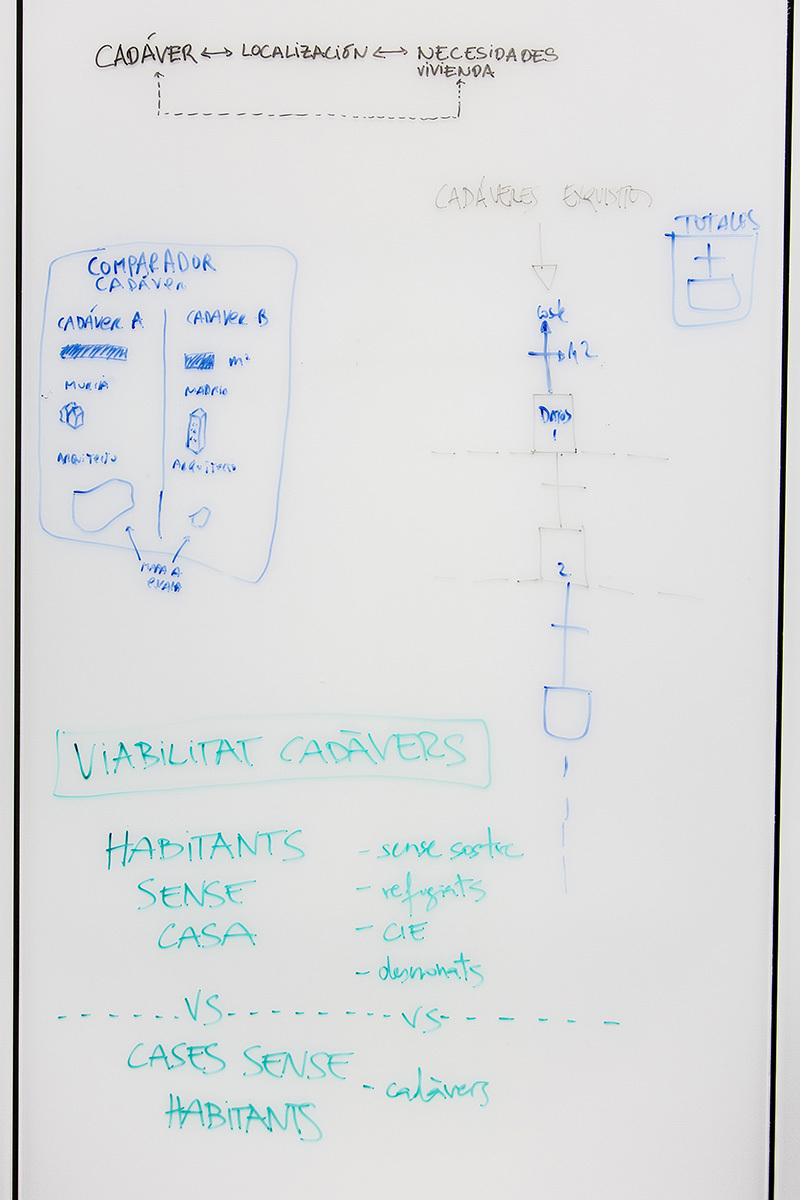 CADÁVER ↔ LOCALIZACIÓN ↔ NECESIDADES
VIVIENDA
CADÁVERES EXQUISITOS
TOTALES
COMPARADOR
CADÁVER
CADÁVER A
CADAVER B
m²
MURCIA
MADRID
ARQUITECTO
ARQUITECTO
MAPA A
ESCALA
Coste
DATOS
1
2
VIABILITAT CADÀVERS
HABITANTS
SENSE
CASA
- sense sostre
- refugiats
- CIE
- desnonats
VS
VS
CASES SENSE
HABITANTS
- cadàvers